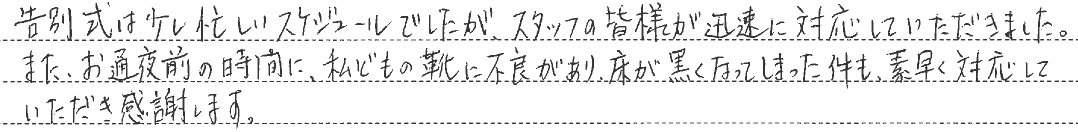 告別式は少し忙しいスケジュールでしたが、スタッフの皆様が迅速に対応していただきました。
また、お通夜前の時間に、私どもの靴に不良があり、床が黒くなってしまった件も、素早く対応して
いただき感謝します。